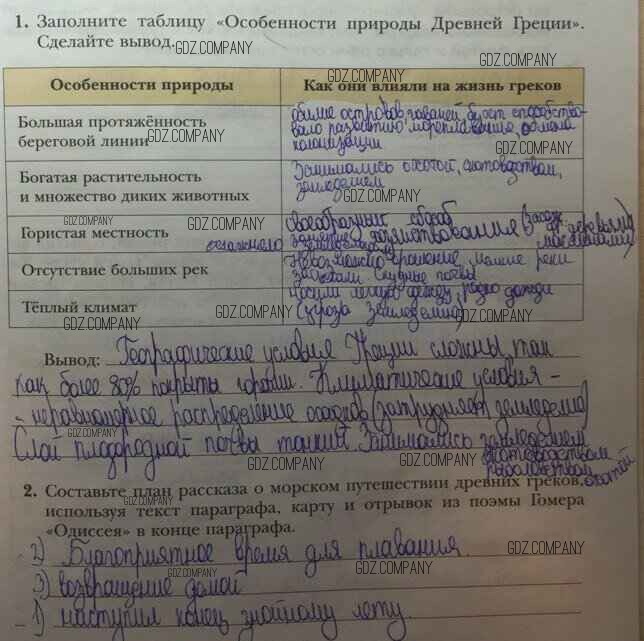 1. Заполните таблицу «Особенности природы Древней Греции».
Сделайте вывод.
GDZ.COMPANY
GDZ.COMPANY
GDZ.COMPANY
Особенности природы
Как они влияли на жизнь греков
Большая протяжённость
береговой линии
GDZ.COMPANY
обилие островов, гаваней, бухт способство-
вало развитию мореплавания, обмена
колонизации
GDZ.COMPANY
Богатая растительность
и множество диких животных
Занимались охотой, скотоводством,
земледелием
GDZ.COMPANY
GDZ.COMPANY
GDZ.COMPANY
GDZ.COMPANY
Гористая местность
своеобразный способ
хозяйствования
осложнено земледелие
Отсутствие больших рек
Невозможно орошение, мелкие реки
скудные почвы
Тёплый климат
носили легкую одежду, редко дожди
(угроза земледелию)
GDZ.COMPANY
GDZ.COMPANY
GDZ.COMPANY
Вывод: Географические условия Греции сложны, так
как более 80% покрыты горами. Климатические условия -
- неравномерное распределение осадков (затрудняет земледелие)
Слой плодородной почвы тонкий. Занимались земледелием
скотоводством
рыболовством, охотой
GDZ.COMPANY
GDZ.COMPANY
GDZ.COMPANY
GDZ.COMPANY
2. Составьте план рассказа о морском путешествии древних греков,
используя текст параграфа, карту и отрывок из поэмы Гомера
«Одиссея» в конце параграфа.
2) Благоприятное время для плавания.
GDZ.COMPANY
GDZ.COMPANY
GDZ.COMPANY
3) возвращение домой
1) наступил конец знойному лету.
GDZ.COMPANY